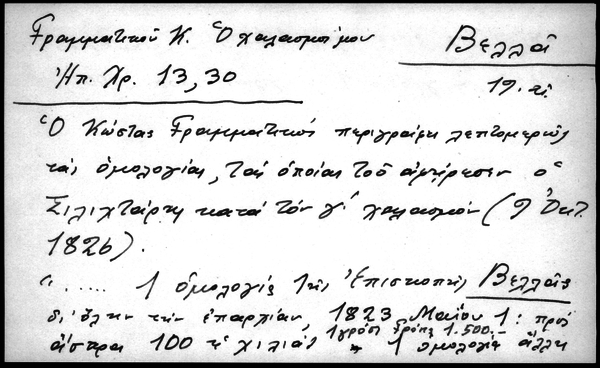 Γραμματικοῦ Κ. Ὁ χαλασμός μου
Βελλᾶ
Ἠπ. Χρ. 13, 30
19. αἰ.
Ὁ Κώστας Γραμματικός περιγράφει λεπτομερῶς
τάς ὁμολογίας, τάς ὁποίας τοῦ ἀφήρεσεν ὁ
Σιλιχτάρης κατά τόν γ' χαλασμόν (9 Ὀκτ.
1826).
"..... 1 ὁμολογία τῆς Ἐπισκοπῆς Βελλᾶς
δι' ὅλην τήν ἐπαρχίαν, 1823 Μαΐου 1: πρός
ἄσπρα 100 τ. χιλιάς 1 γρόσι 1.500.-
1 ὁμολογία ἄλλη